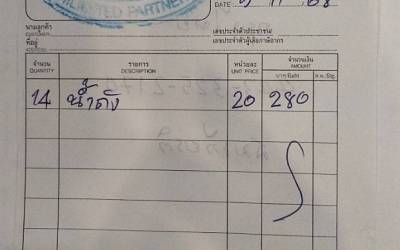 LIMITED PARTNER
DATE
นามลูกค้า
เลขประจำตัวประชาชน/
ที่อยู่
เลขประจำตัวผู้เสียภาษีอากร
จำนวน รายการ หน่วยละ จำนวนเงิน
QUANTITY DESCRIPTION UNIT PRICE AMOUNT
บาท Baht ส.ต. Stg.
14 น้ำถัง 20 280